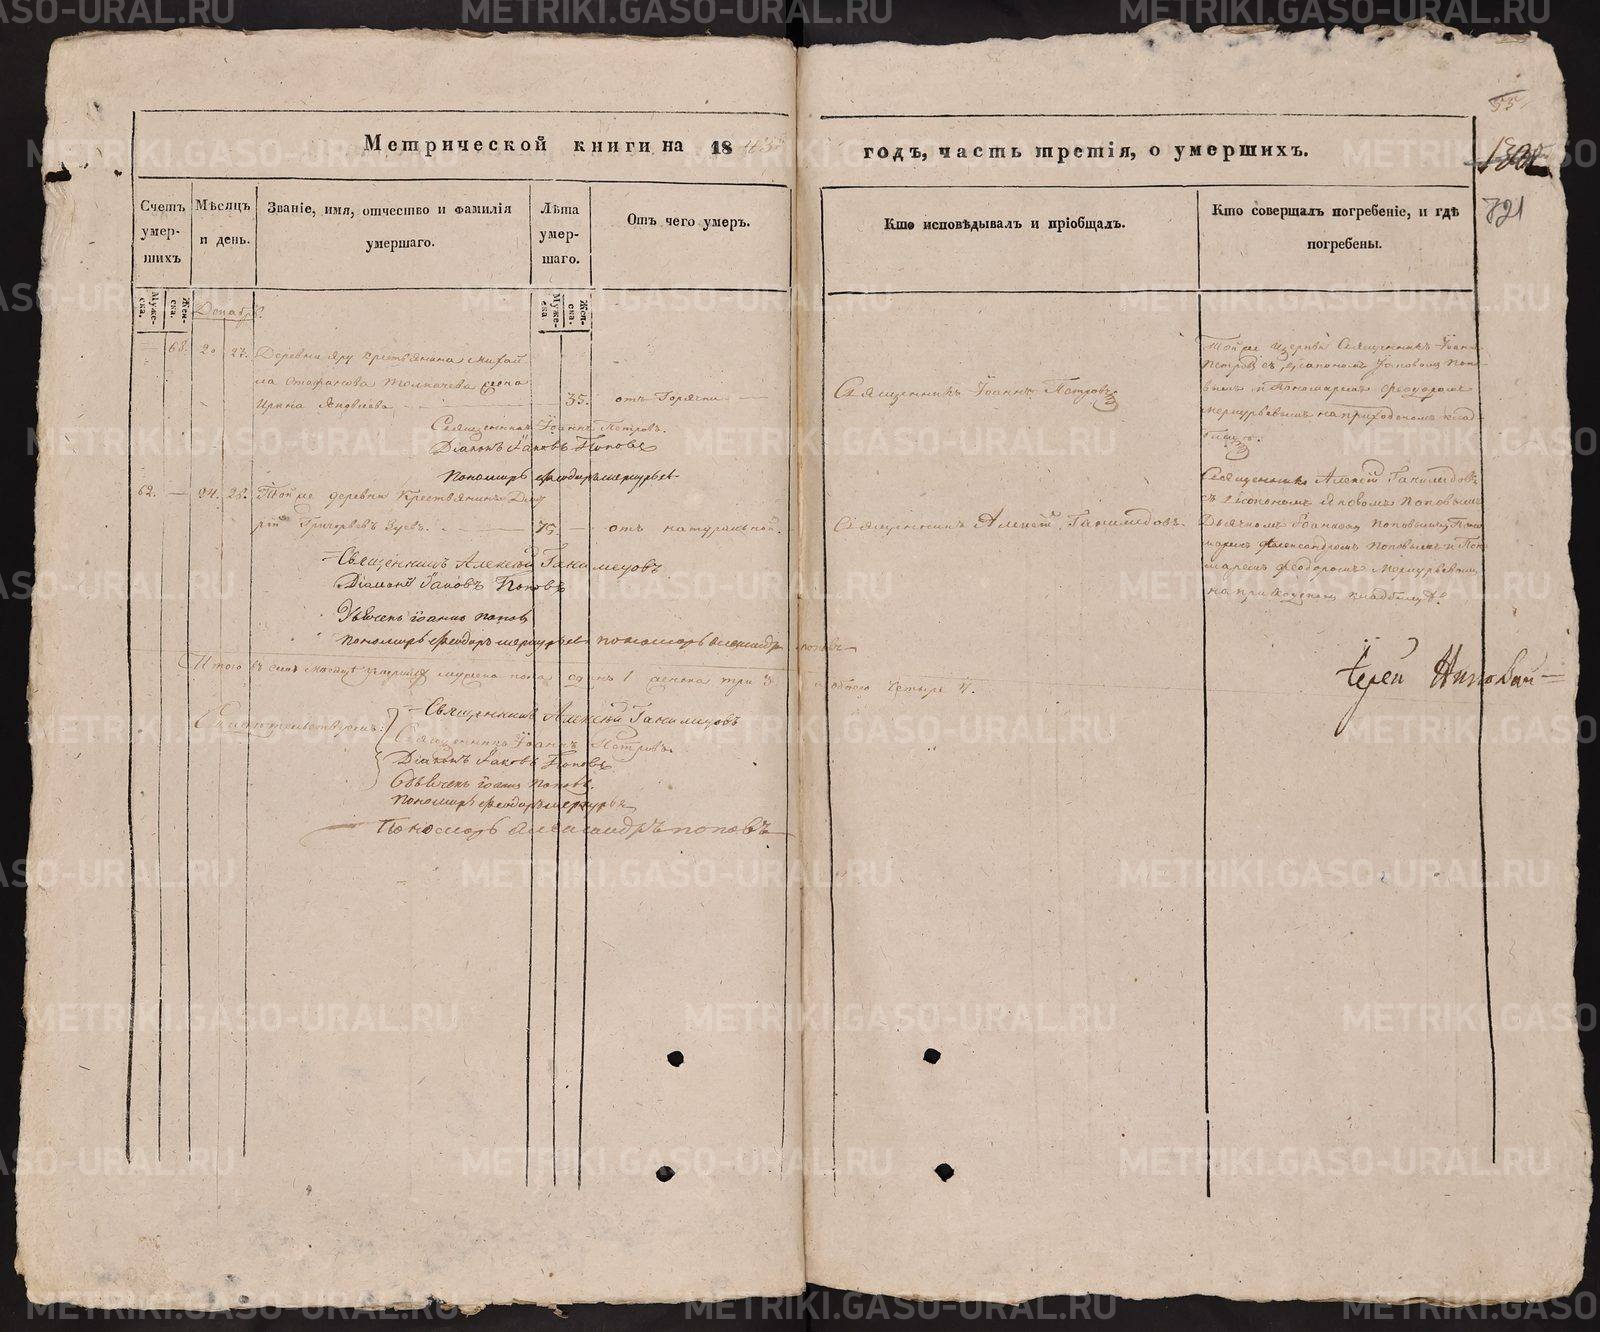 Метрической книги на 1843
годъ, часть третія, о умершихъ.
55
721
Счетъ умер- шихъ
Мѣсяцъ и день.
Званіе, имя, отчество и фамилія умершаго.
Лѣта умер- шаго.
Отъ чего умеръ.
Кто исповѣдывалъ и пріобщалъ.
Кто совершалъ погребеніе, и гдѣ погребены.
Муже- ска.
Жен- ска.
Муже- ска
Жен- ска.
Декабрь.
68. 20 27. Деревни Яру крестьянина Михай
ла Стефанова Толмачева жена
Ирина Яковлева 35. отъ Горячки
Священникъ Іоаннъ Петровъ
Тойже церкви Священникъ Іоаннъ
Петровъ съ Діакономъ Іаковомъ Попо
вымъ и Пономаремъ Феодоромъ
Меркурьевымъ на приходскомъ клад
бищѣ.
Священникъ Іоаннъ Петровъ.
Діаконъ Іаковъ Поповъ
Пономарь Феодоръ Меркурьевъ
62. 24. 28. Той же деревни Крестьянинъ Дмит
рій Григорьевъ Зуевъ. 75. отъ натуральной.
Священникъ Алексѣй Ганимедовъ.
Священникъ Алексѣй Ганимедовъ
съ Діакономъ Яковомъ Поповымъ
Дьячкомъ Іоанномъ Поповымъ Поно
маремъ Александромъ Поповымъ и Поно
маремъ Феодоромъ Меркурьевымъ
на приходскомъ кладбищѣ.
Священникъ Алексѣй Ганимедовъ
Діаконъ Іаковъ Поповъ
Дьячекъ Іоаннъ Попов
Пономарь Феодоръ Меркурьевъ Пономарь Александръ Поповъ
Итого въ семъ месяце умершихъ мужеска пола одинъ 1 женска три 3
и обоего четыре 4.
Іерей Николай
Свидетельствуемъ: Священникъ Алексѣй Ганимедовъ
Священникъ Іоаннъ Петровъ.
Діаконъ Іаковъ Поповъ
Дьячекъ Іоаннъ Поповъ.
Пономарь Феодоръ Меркурьев
Пономарь Александръ Поповъ
METRIKI.GASO-URAL.RU